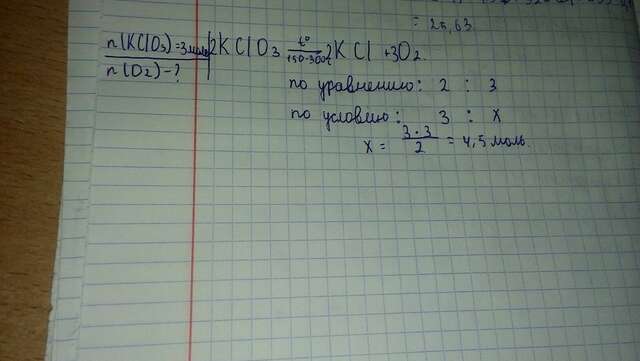 = 25,63
n(KClO₃)=3моль 2KClO₃ t° 150-300t 2KCl + 3O₂
n(O₂)-?
по уравнению: 2 : 3
по условию: 3 : x
x = 3·3/2 = 4,5 моль.